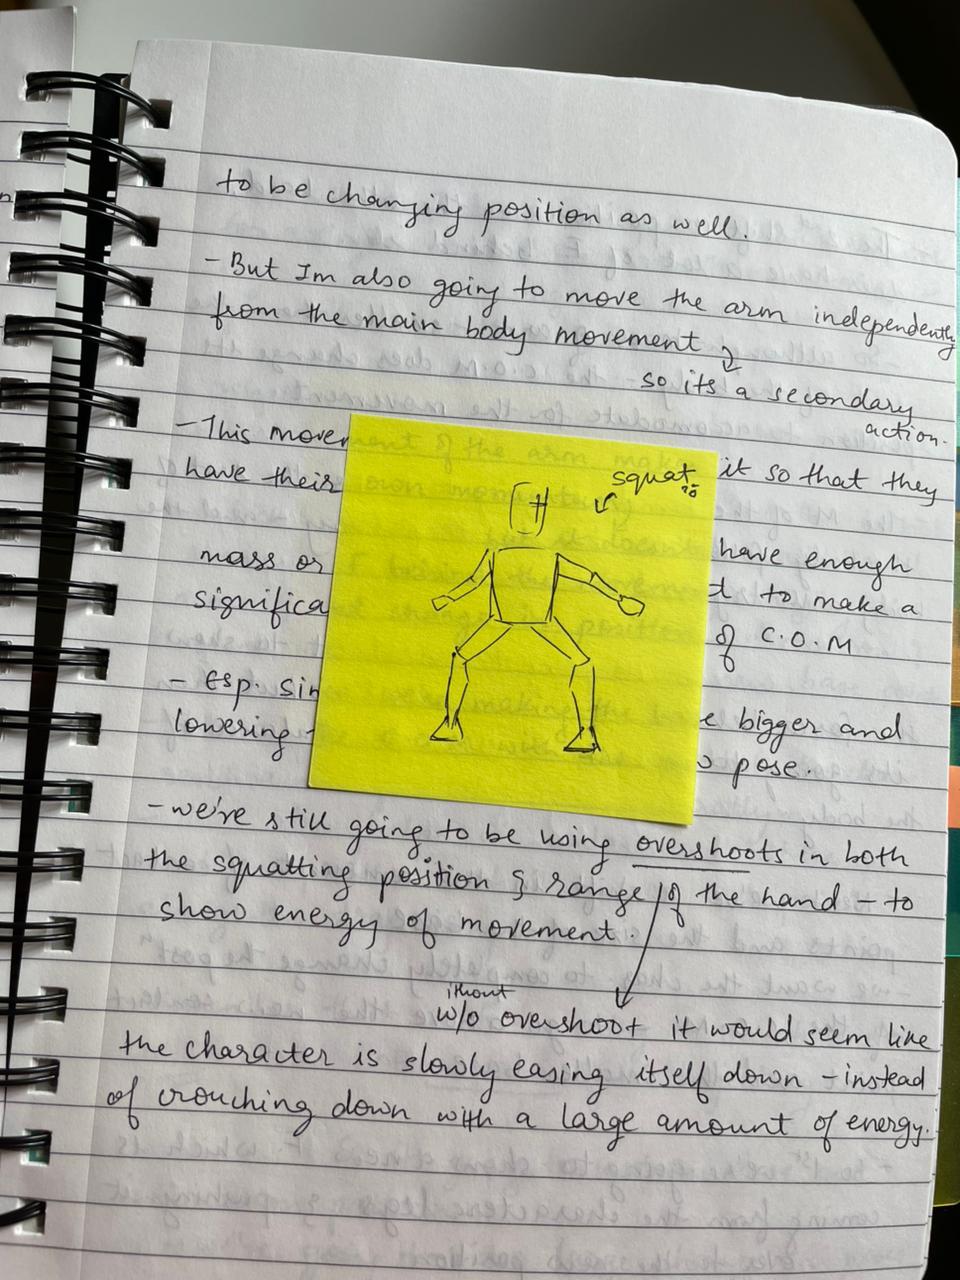 to be changing position as well.
- But Im also going to move the arm independently
from the main body movement
so its a secondary
action.
- This movement of the arm makes it so that they
have their own momentum
squat
mass or have enough
significa t to make a
of C.O.M
- Esp. sin e bigger and
lowering - pose.
- we're still going to be using overshoots in both
the squatting position & range of the hand - to
show energy of movement.
ithout
w/o overshoot it would seem like
the character is slowly easing itself down - instead
of crouching down with a large amount of energy.